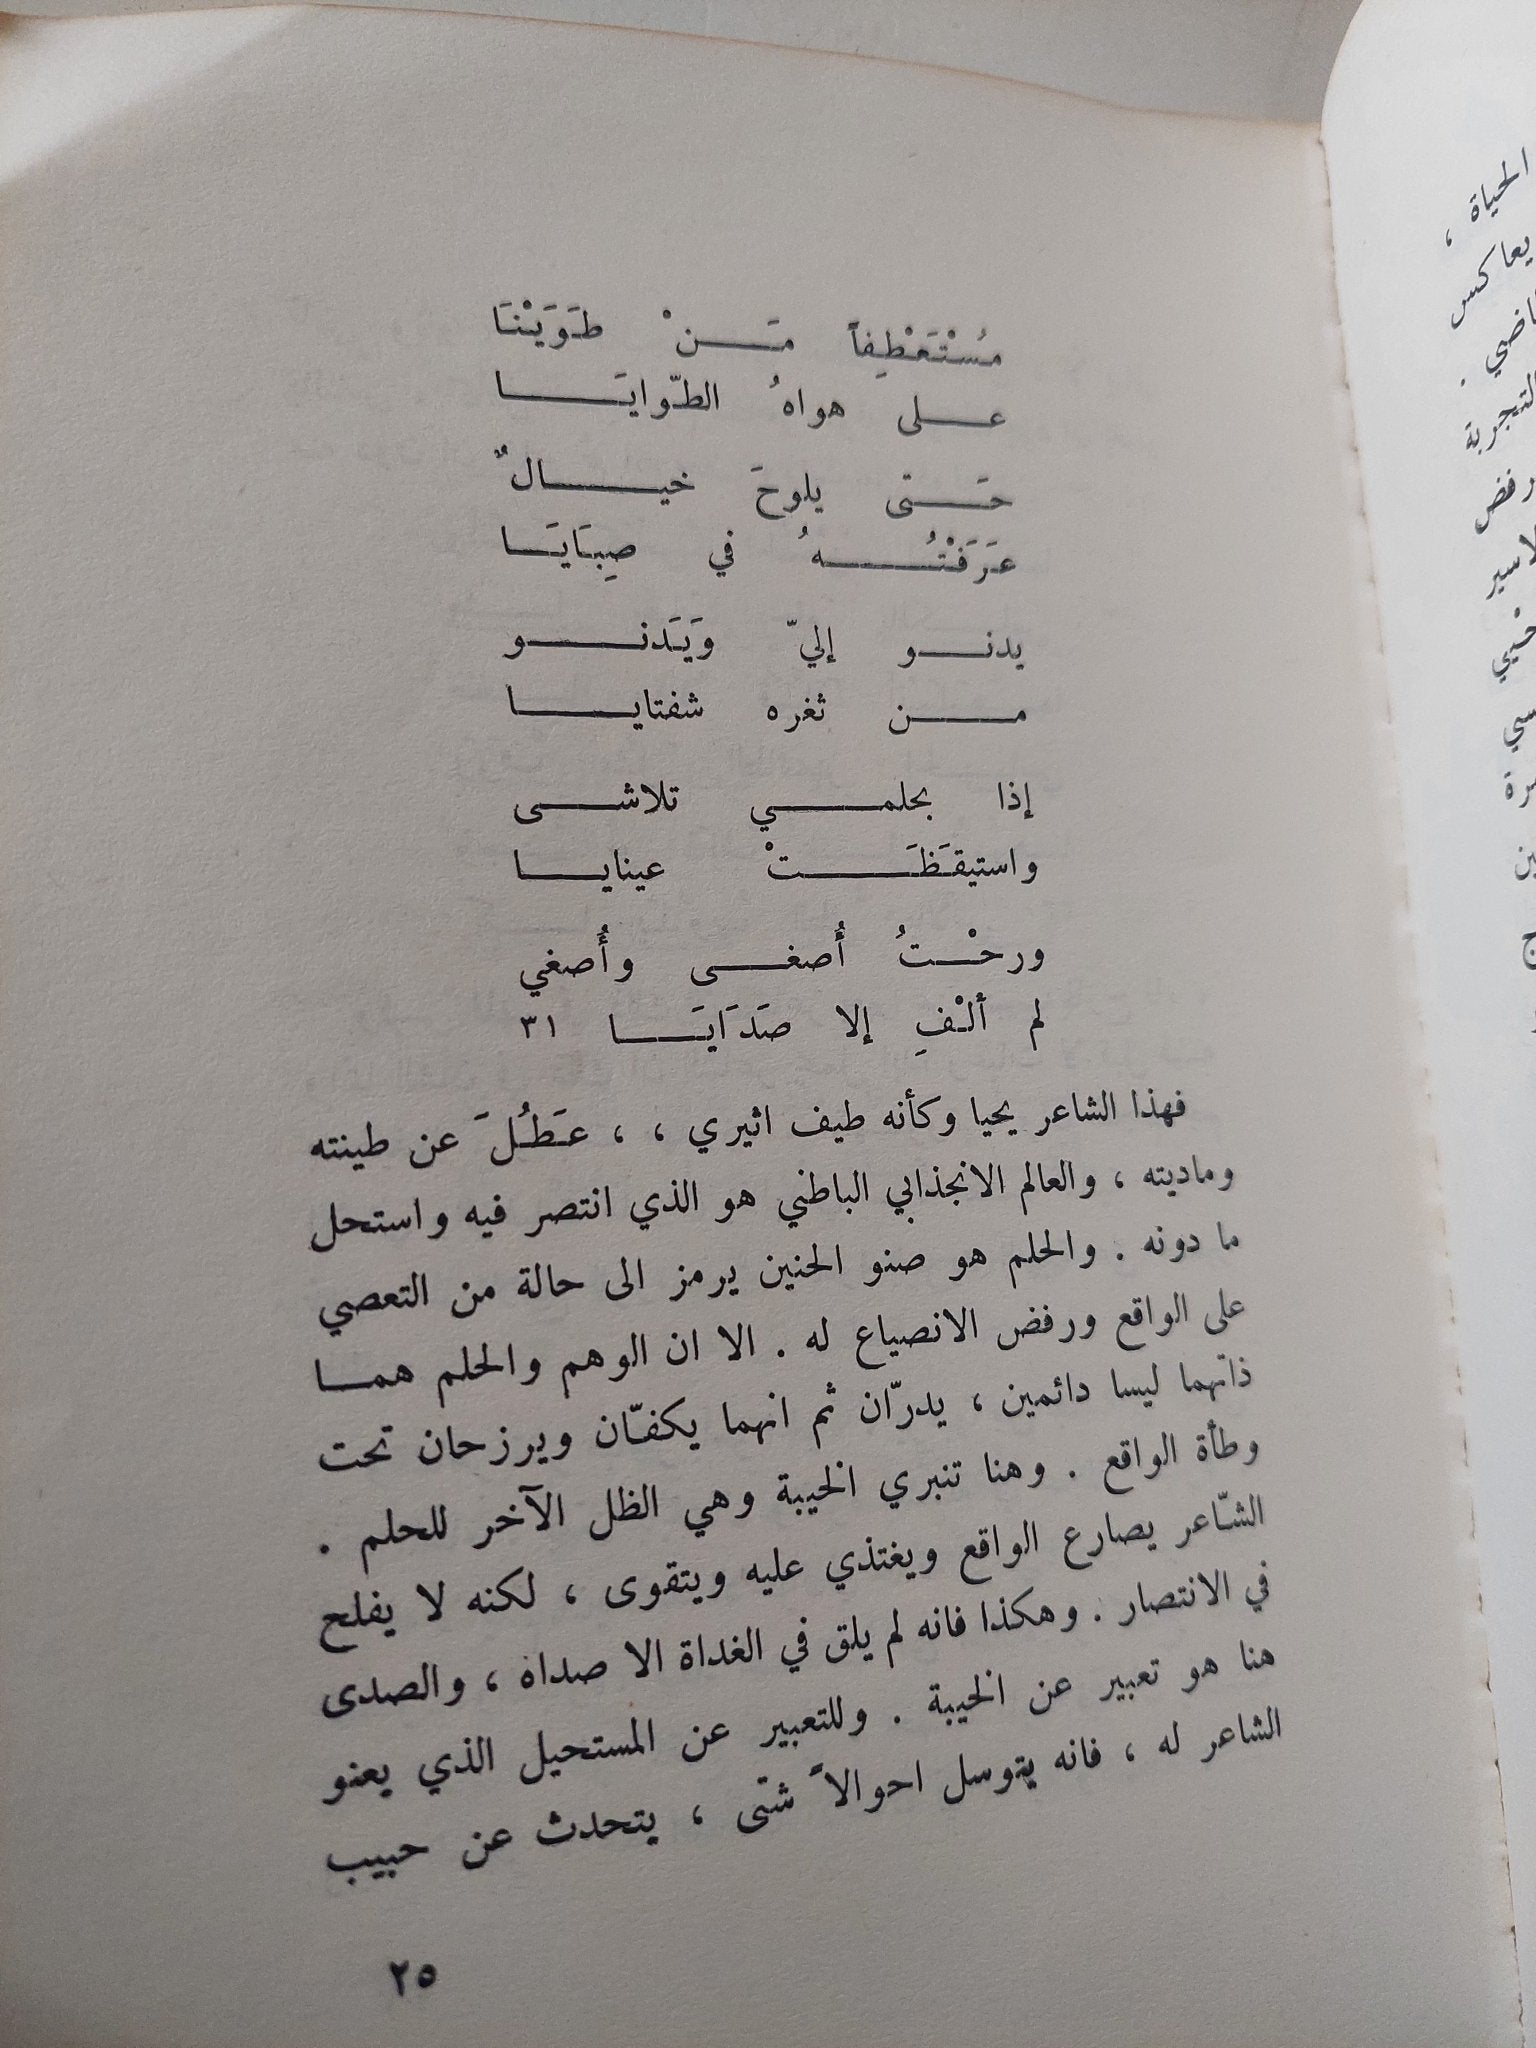 مُسْتَعْطِفاً مَنْ طَوَيْنَا
على هواهُ الطّوايَا
حَتى يلوحَ خيالٌ
عَرَفْتُهُ في صِبَايَا
يدنو إليّ وَيَدنو
من ثغره شفتايا
إذا بحلمي تلاشى
واستيقَظَتْ عينايا
ورحْتُ أُصغي وأُصغي
لم ألْفِ إلا صَدَايَا ٣١
فهذا الشاعر يحيا وكأنه طيف اثيري ، ، عَطُلَ عن طينته
وماديته ، والعالم الانجذابي الباطني هو الذي انتصر فيه واستحل
ما دونه . والحلم هو صنو الحنين يرمز الى حالة من التعصي
على الواقع ورفض الانصياع له . الا ان الوهم والحلم هما
ذاتهما ليسا دائمين ، يدرّان ثم انهما يكفّان ويرزحان تحت
وطأة الواقع . وهنا تنبري الخيبة وهي الظل الآخر للحلم .
الشّاعر يصارع الواقع ويغتذي عليه ويتقوى ، لكنه لا يفلح
في الانتصار . وهكذا فانه لم يلق في الغداة الا صداه ، والصدى
هنا هو تعبير عن الخيبة . وللتعبير عن المستحيل الذي يعنو
الشاعر له ، فانه يتوسل احوالاً شتى ، يتحدث عن حبيب
٢٥
الحياة ،
يعاكس
التجربة
رفض